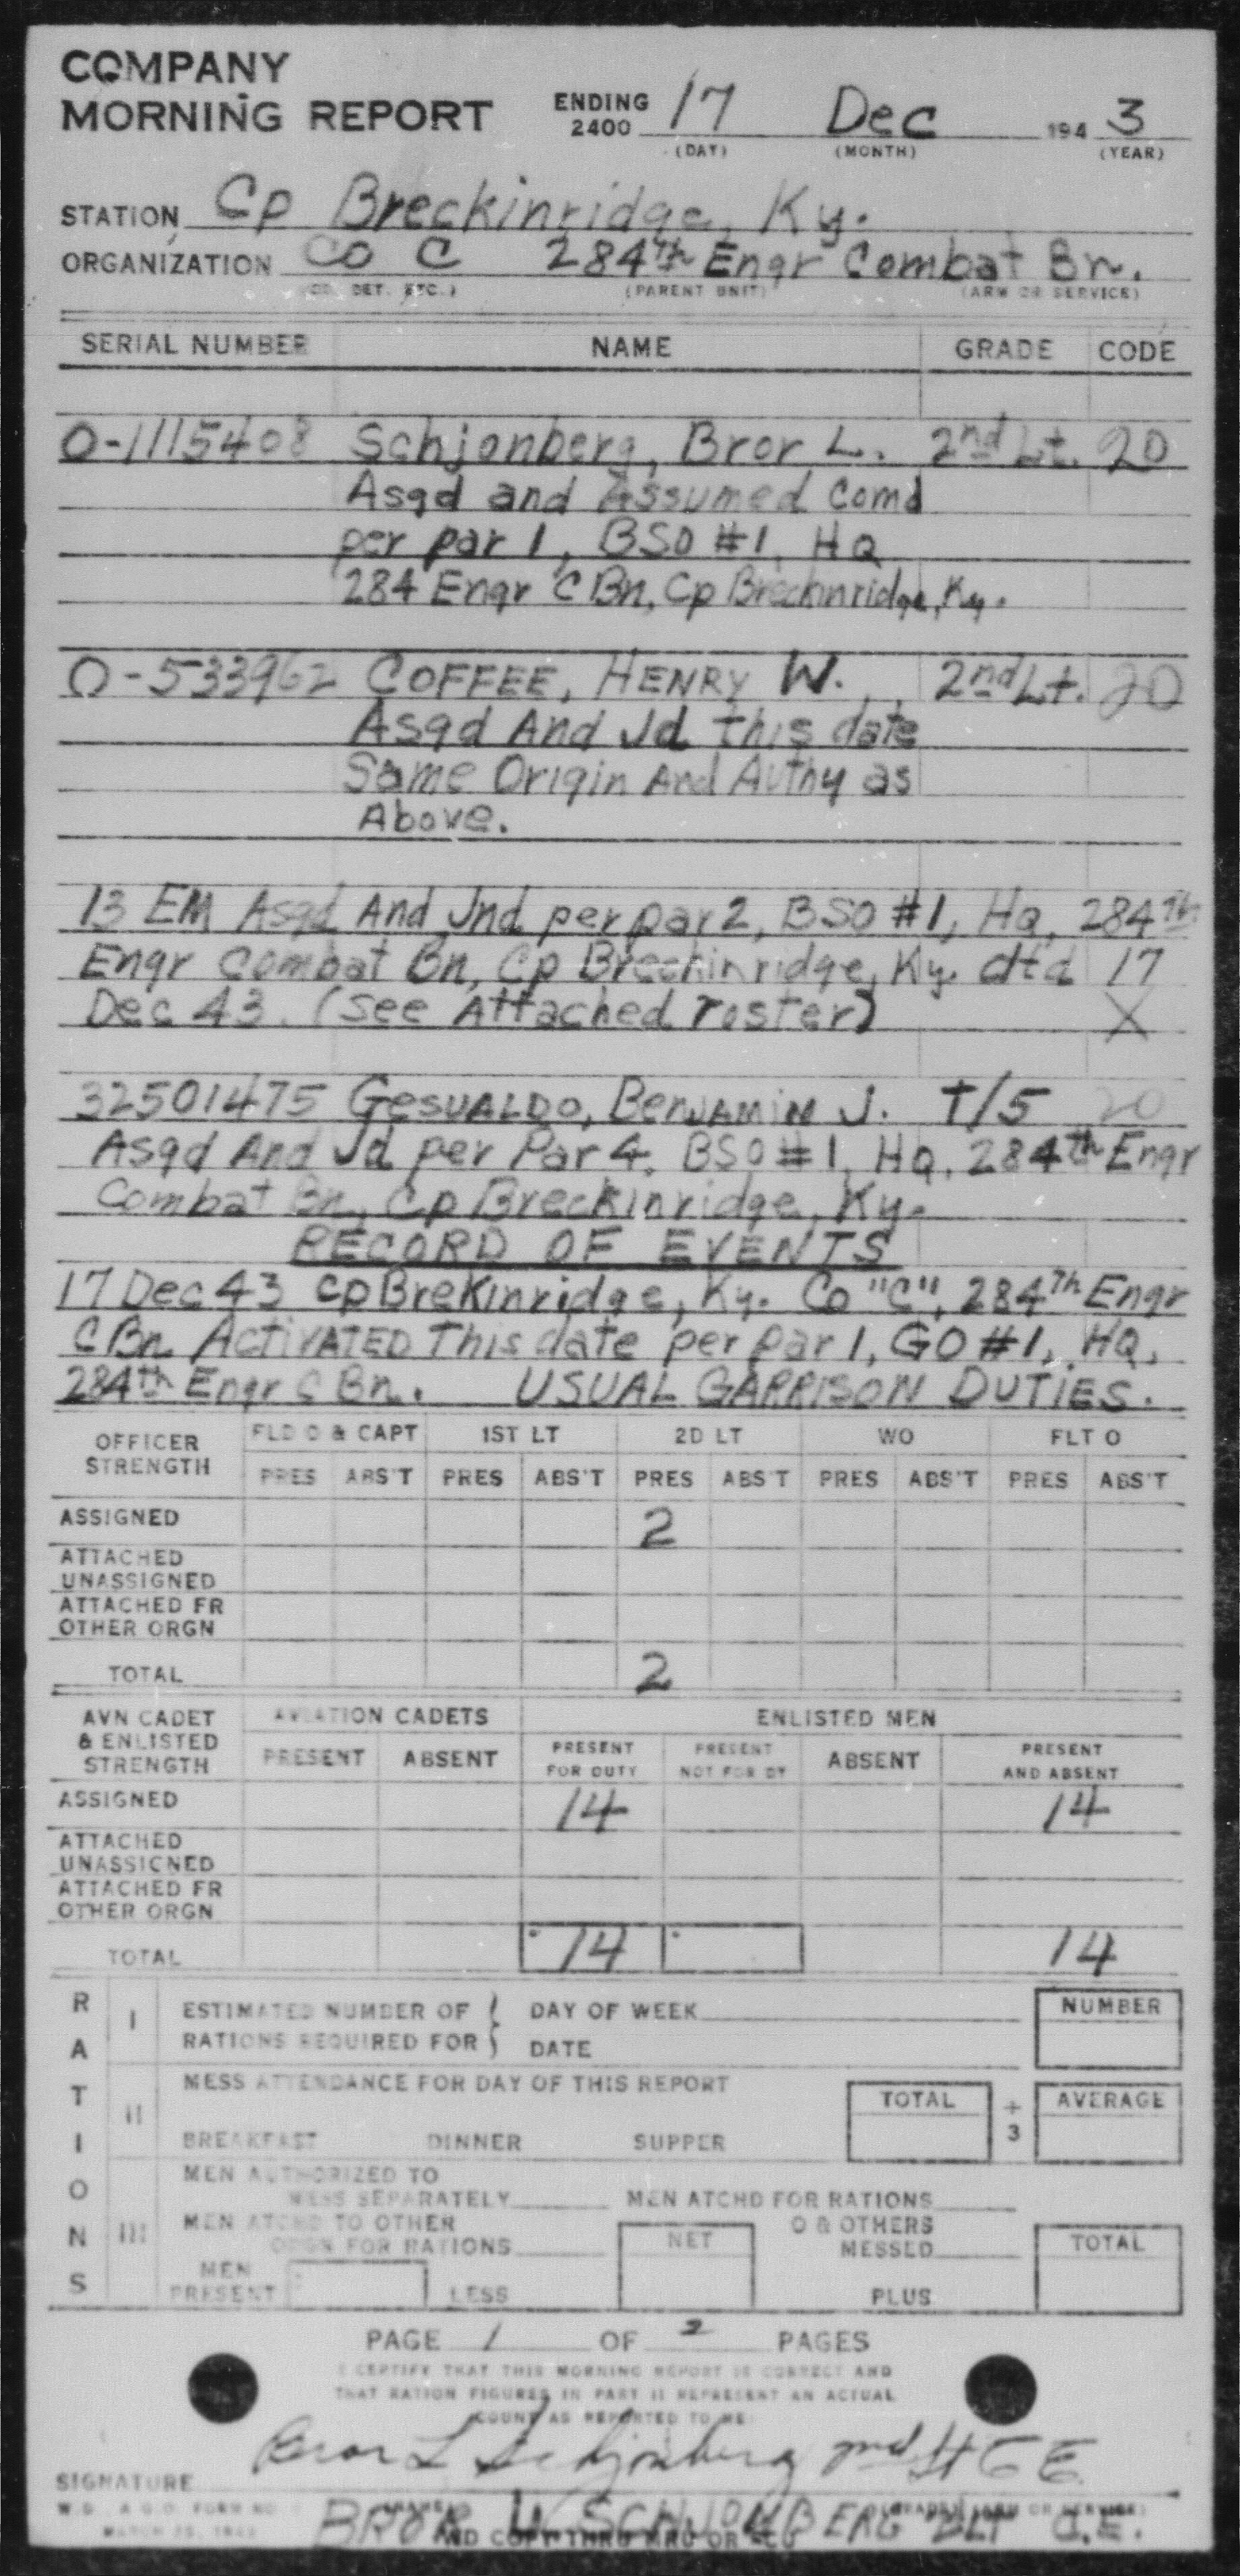 COMPANY
MORNING REPORT ENDING 2400 17 Dec 194 3
(DAY) (MONTH) (YEAR)
STATION Cp Breckinridge, Ky.
ORGANIZATION Co C 284th Engr Combat Bn.
(CO, DET, ETC.) (PARENT UNIT) (ARM OR SERVICE)
SERIAL NUMBER NAME GRADE CODE
O-1115408 Schjonberg, Bror L. 2nd Lt. 20
Asgd and Assumed Comd
per par 1, BSO #1, HQ
284 Engr C Bn, Cp Breckinridge, Ky.
O-533962 COFFEE, HENRY W. 2nd Lt. 20
Asgd And Jd this date
Same Origin And Authy as
Above.
13 EM Asgd And Jnd per par 2, BSO #1, Hq, 284th
Engr Combat Bn, Cp Breckinridge, Ky. dtd 17
Dec 43. (See Attached roster) X
32501475 GESUALDO, BENJAMIN J. T/5 20
Asgd And Jd per Par 4, BSO #1, Hq, 284th Engr
Combat Bn, Cp Breckinridge, Ky.
RECORD OF EVENTS
17 Dec 43 Cp Brekinridge, Ky. Co "C", 284th Engr
C Bn ACTIVATED This date per par 1, GO #1, HQ,
284th Engr C Bn. USUAL GARRISON DUTIES.
OFFICER STRENGTH FLD O & CAPT 1ST LT 2D LT WO FLT O
PRES ABS'T PRES ABS'T PRES ABS'T PRES ABS'T PRES ABS'T
ASSIGNED 2
ATTACHED UNASSIGNED
ATTACHED FR OTHER ORGN
TOTAL 2
AVN CADET & ENLISTED STRENGTH AVIATION CADETS ENLISTED MEN
PRESENT ABSENT PRESENT FOR DUTY PRESENT NOT FOR DY ABSENT PRESENT AND ABSENT
ASSIGNED 14 14
ATTACHED UNASSIGNED
ATTACHED FR OTHER ORGN
TOTAL 14 14
RATIONS
I ESTIMATED NUMBER OF RATIONS REQUIRED FOR { DAY OF WEEK NUMBER
DATE
II MESS ATTENDANCE FOR DAY OF THIS REPORT TOTAL ÷ 3 AVERAGE
BREAKFAST DINNER SUPPER
III MEN AUTHORIZED TO
MESS SEPARATELY MEN ATCHD FOR RATIONS
MEN ATCHD TO OTHER
ORGN FOR RATIONS NET O & OTHERS MESSED TOTAL
MEN PRESENT LESS PLUS
PAGE 1 OF 2 PAGES
I CERTIFY THAT THIS MORNING REPORT IS CORRECT AND
THAT RATION FIGURES IN PART II REPRESENT AN ACTUAL
COUNT AS REPORTED TO ME
Bror L Schjonberg 2nd Lt C E
SIGNATURE
W.D. A.G.O. FORM NO (GRADE) (ARM OR SERVICE)
BROR L. SCHJONBERG 2LT C.E.